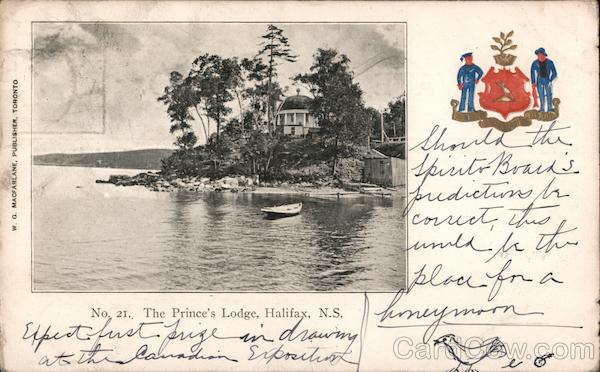 W. G. MACFARLANE, PUBLISHER, TORONTO
No. 21. The Prince's Lodge, Halifax, N.S.
Should the
Spirit Board's
predictions be
correct, this
would be the
place for a
honeymoon
Expect first prize in drawing
at the Canadian Exposition
CardCow.com